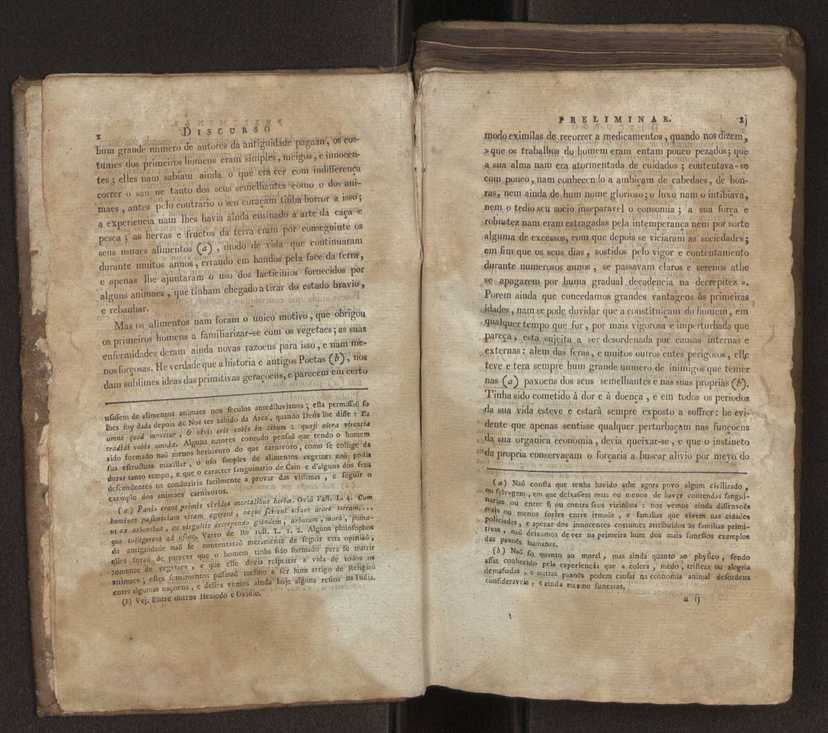 2 DISCURSO
hum grande numero de autores da antiguidade pagam, os cos-
tumes dos primeiros homens eram simples, meigos, e innocen-
tes; elles nam sabiam ainda o que era ver com indifferença
correr o sangue tanto dos seus semelhantes como o dos ani-
maes, antes pelo contrario o seu coraçam tinha horror a isso;
a experiencia nam lhes havia ainda ensinado a arte da caça e
pesca; as hervas e fructos da terra eram por conseguinte os
seus usuaes alimentos (a), modo de vida que continuaram
durante muitos annos, errando em bandos pela face da terra,
e apenas lhe ajuntaram o uso dos lacticinios fornecidos por
alguns animaes, que tinham chegado a tirar do estado bravio,
e rebanhar.
Mas os alimentos nam foram o unico motivo, que obrigou
os primeiros homens a familiarizar-se com os vegetaes; as suas
enfermidades deram ainda novas razoens para isso, e nam me-
nos forçosas. He verdade que a historia e antigos Poetas (b), nos
dam sublimes ideas das primitivas geraçoens, e parecem em certo
usassem de alimentos animaes nos seculos antediluvianos; esta permissaõ so
lhes foy dada depois de Noe ter sahido da Arca, quando Deus lhe disse: Ea
omnia quæ moventur, & vivis erit vobis in cibum: quasi olera virentia
tradidi vobis omnia. Alguns autores comtudo pensaõ que tendo o homem
sido formado naõ menos herbivoro do que carnivoro, como se collige da
sua estructura maxillar, o uso simples de alimentos vegetaes naõ podia
durar tanto tempo, e que o caracter sanguinario de Cain e d'alguns dos seus
descendentes os conduziria facilmente a provar das victimas, e seguir o
exemplo dos animaes carnivoros.
(a) Panis erant primis virides mortalibus herbæ. Ovid Fast. L. 4. Cum
homines pastoriciam vitam agerent, neque scirent etiam arare terram....
Varro de Re rust. L. 2. Alguns philosophos
da antiguidade naõ se contentaraõ meramente de seguir esta opiniaõ,
elles foraõ de parecer que o homem tinha sido formado para se nutrir
somente de vegetaes, e que elle devia respeitar a vida de todos os
animaes; estes sentimentos passaraõ mesmo a ser hum artigo de Religiaõ
entre algumas naçoens, e destes vemos ainda hoje alguns restos na India.
(b) Vej. Entre outros Hesiodo e Ovidio.
PRELIMINAR. 3
modo eximilas de recorrer a medicamentos, quando nos dizem,
» que os trabalhos do homem eram entam pouco pezados; que
a sua alma nam era atormentada de cuidados; contentava-se
com pouco, nam conhecendo a ambiçam de cabedaes, de hon-
ras, nem ainda de hum nome glorioso; o luxo nam o intibiava,
nem o tedio seu socio inseparavel o consumia; a sua força e
robustez nam eram estragadas pela intemperança nem por sorte
alguma de excessos, com que depois se viciaram as sociedades;
em fim que os seus dias, sostidos pelo vigor e contentamento
durante numerosos annos, se passavam claros e serenos athe
se apagarem por huma gradual decadencia na decrepitez ».
Porem ainda que concedamos grandes vantagens ás primeiras
idades, nam se pode duvidar que a constituiçam do homem, em
qualquer tempo que for, por mais vigorosa e imperturbada que
pareça, esta sujeita a ser desordenada por causas internas e
externas: alem das feras, e muitos outros entes perigosos, elle
teve e tera sempre hum grande numero de inimigos que temer
nas (a) paxoens dos seus semelhantes e nas suas proprias (b).
Tinha sido cometido á dor e á doença, e em todos os periodos
da sua vida esteve e estará sempre exposto a soffrer: he evi-
dente que apenas sentisse qualquer perturbaçam nas funçoens
da sua organica economia, devia queixar-se, e que o instincto
da propria conservaçam o forçaria a buscar alivio por meyo do
(a) Naõ consta que tenha havido athe agora povo algum civilizado,
ou selvagem, em que deixassem mais ou menos de haver contendas sangui-
narias ou entre si ou contra seus visinhos: nos vemos ainda dissensoẽs
mais ou menos fortes entre irmaõs, e familias que vivem nas cidades
policiadas, e apezar dos innocentes costumes attribuidos ás familias primi-
tivas, naõ deixamos de ver na primeira hum dos mais funestos exemplos
das paxoẽs humanas.
(b) Naõ so quanto ao moral, mas ainda quanto ao physico, sendo
assas conhecido pela experiencia que a colera, medo, tristeza ou alegria
demasiadas, e outras paxoẽs podem causar na economia animal desordens
consideraveis, e ainda mesmo funestas.
a ij